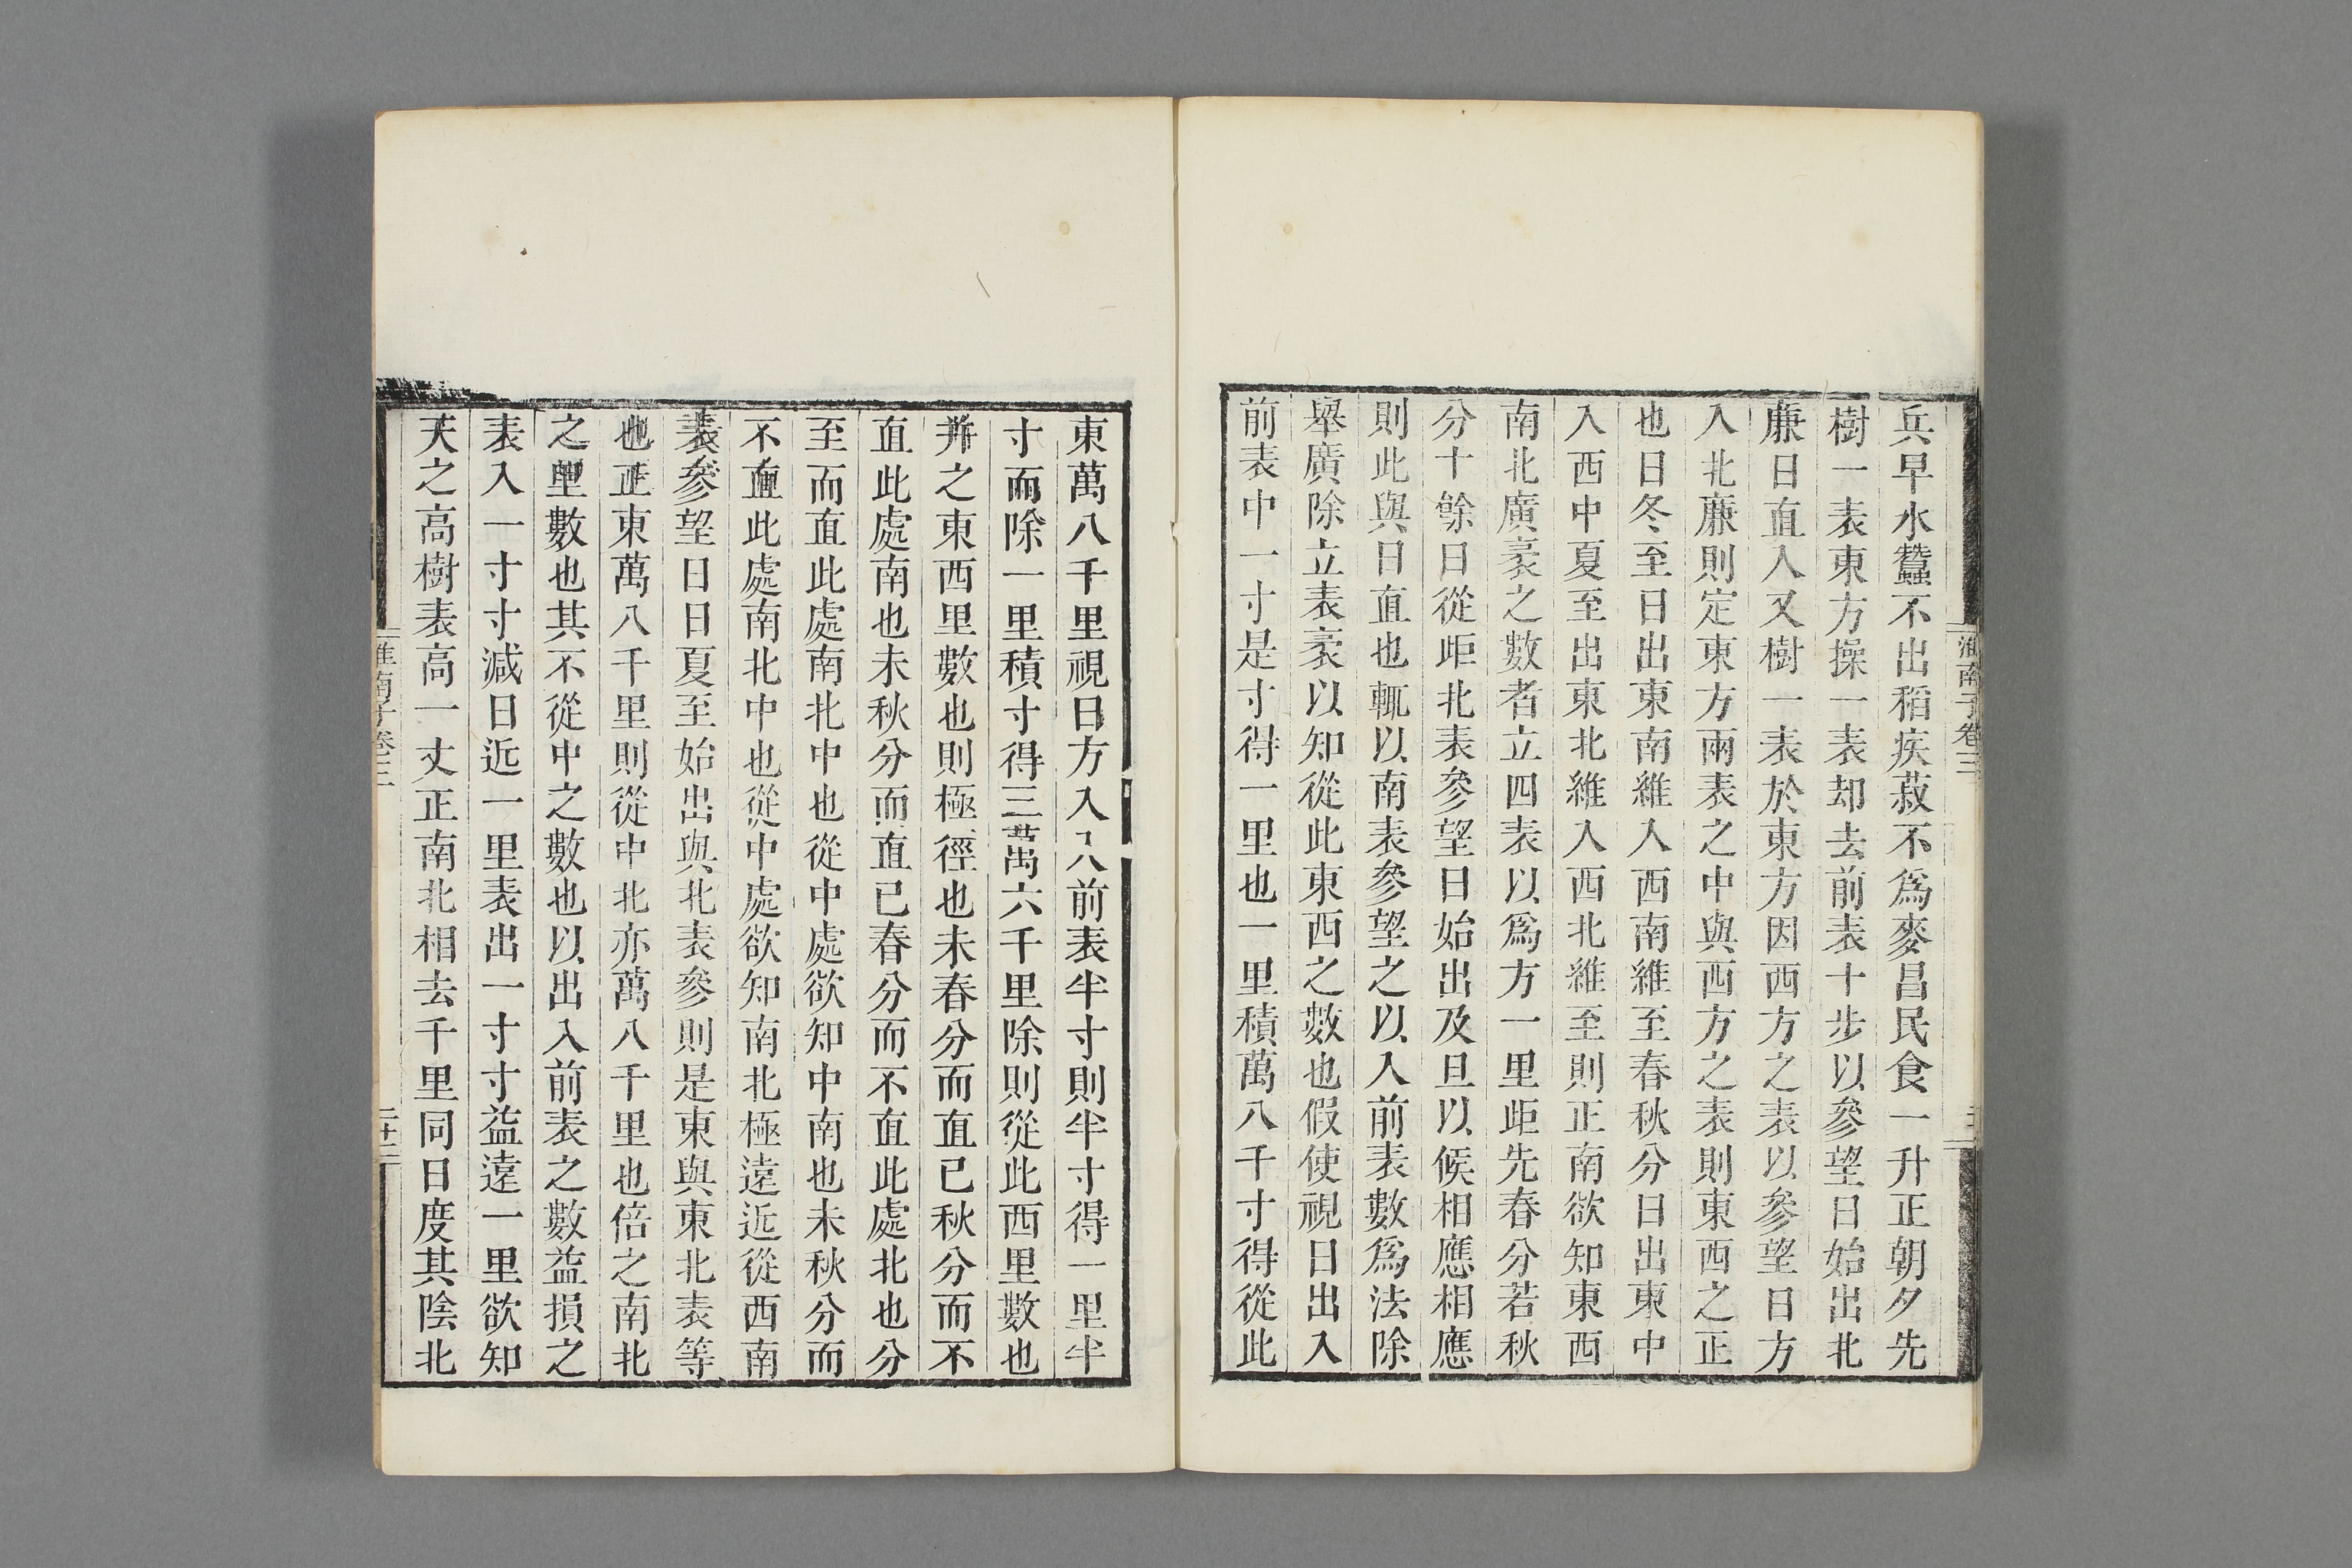 淮南子卷三
兵旱水蠶不出稻疾菽不爲麥昌民食一升正朝夕先
樹一表東方操一表却去前表十步以參望日始出北
廉日直入又樹一表於東方因西方之表以參望日方
入北廉則定東方兩表之中與西方之表則東西之正
也日冬至日出東南維入西南維至春秋分日出東中
入西中夏至出東北維入西北維至則正南欲知東西
南北廣袤之數者立四表以爲方一里歫先春分若秋
分十餘日從歫北表參望日始出及旦以候相應相應
則此與日直也輒以南表參望之以入前表數爲法除
舉廣除立表袤以知從此東西之數也假使視日出入
前表中一寸是寸得一里也一里積萬八千寸得從此
東萬八千里視日方入入前表半寸則半寸得一里半
寸而除一里積寸得三萬六千里除則從此西里數也
并之東西里數也則極徑也未春分而直已秋分而不
直此處南也未秋分而直已春分而不直此處北也分
至而直此處南北中也從中處欲知中南也未秋分而
不直此處南北中也從中處欲知南北極遠近從西南
表參望日日夏至始出與北表參則是東與東北表等
也正東萬八千里則從中北亦萬八千里也倍之南北
之里數也其不從中之數也以出入前表之數益損之
表入一寸寸減日近一里表出一寸寸益遠一里欲知
天之高樹表高一丈正南北相去千里同日度其陰北
淮南子卷三